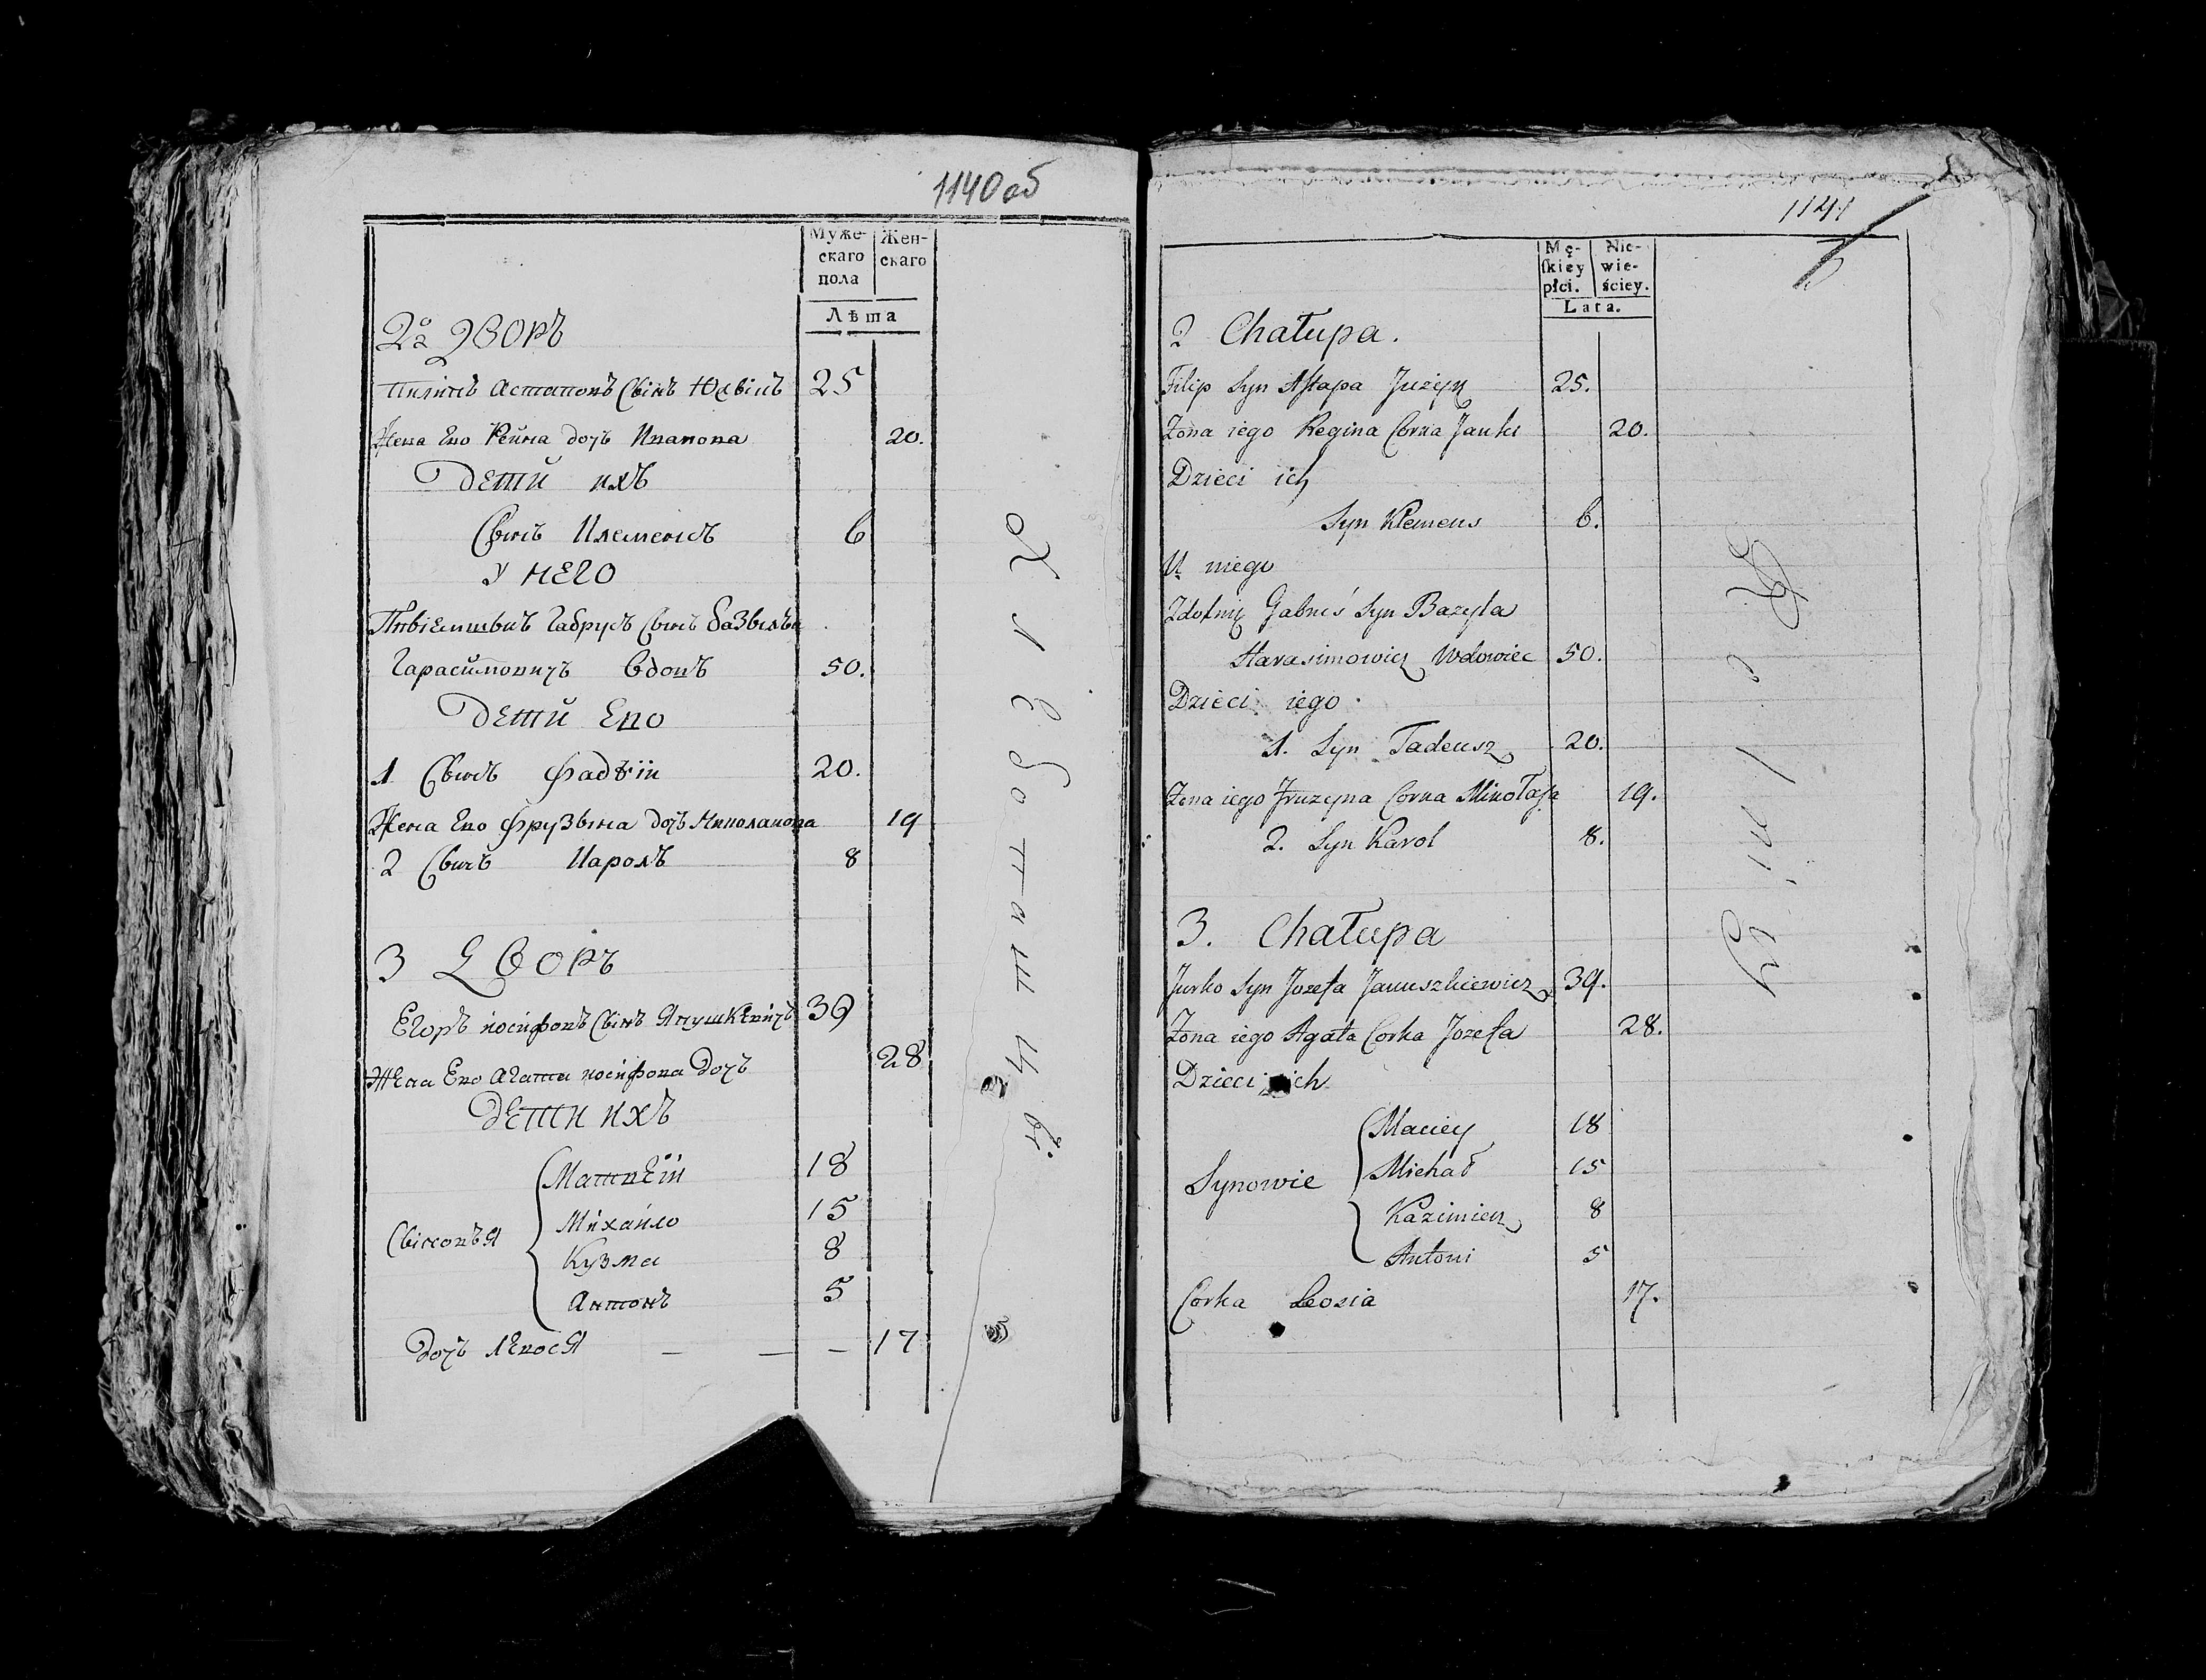 1140 об
Муже-
скаго
пола
Жен-
скаго
Лѣта
2й дворъ
Пилипъ Астаповъ Сынъ 25
Жена Ево Реина дочь Иванова 20.
Дети ихъ
Сынъ Клеменсъ 6
У него
Габрусь Сынъ Базылѣв
Гарасимовичъ Вдовъ 50.
Дети Ево
1 Сынъ Фадѣй 20.
Жена Ево Фрузына дочь Миколаиова 19
2 Сынъ Кароль 8
3 Дворъ
Егоръ Иосифовъ Сынъ Янушкевичъ 39
Жена Ево Агата Иосифова дочь 28
Дети ихъ
Матвей 18
Михайло 15
Сыновья
Кузма 8
Антонъ 5
дочь — — — 17
1141
Mę-
ſkiey
płci.
Nie-
wie-
ściey.
Lata.
2 Chałupa.
Filip Syn Aſtapa 25.
Zona iego Regina Corka Janki 20.
Dzieci ich
Syn Klemens 6.
U niego
Gabruś Syn Bazyla
Harasimowicz Wdowiec 50.
Dzieci iego
1. Syn Tadeusz 20.
Zona iego Fruzyna Corka Mikołaja 19.
2. Syn Karol 8.
3. Chałupa
Jurko Syn Jozefa Januszkiewicz 39.
Zona iego Agata Corka Jozefa 28.
Dzieci ich
Maciey 18
Synowie Michał 15
Kazimierz 8
Antoni 5
Corka Leosia 17.